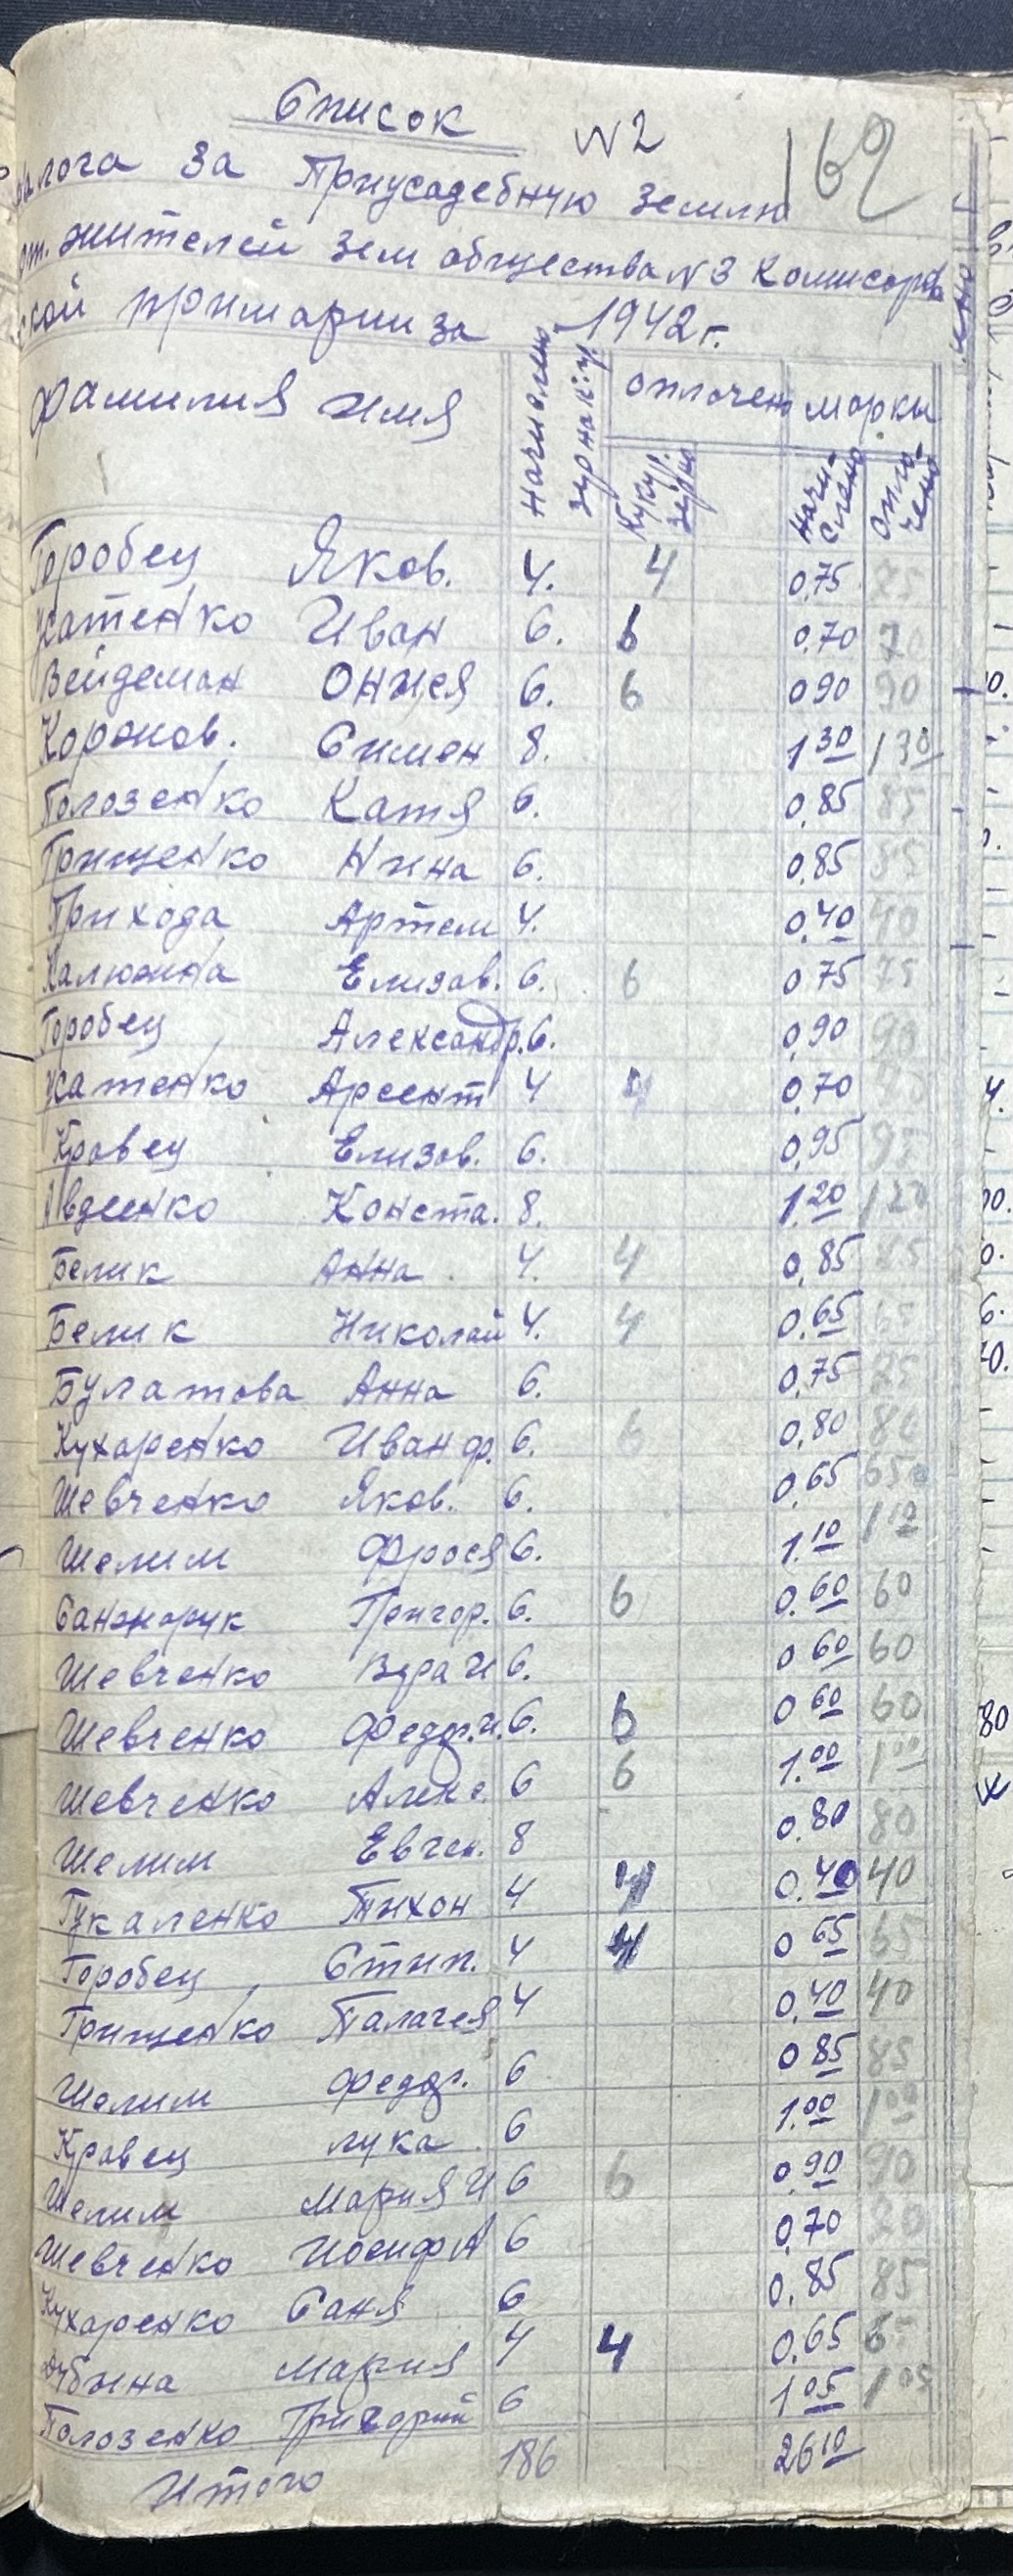 Список
N2
169
налога за Приусадебную землю
от жителей зем общества N3 Комисаров
ской примарии за 1942 г.
Фамилия имя Начислено зерна к-гр. оплочено марки
Кукур. зерна Начи-слено опла-чено
Горобец Яков. 4. 4 0,75 75
Усатенко Иван 6. 6 0,70 70
Вейдеман Онися 6. 6 0 90 90
Коронов. Симен 8. 1 30 1 30
Полозенко Катя 6. 0,85 85
Грищенко Нина 6. 0,85 85
Приходa Артем 4. 0,40 40
Калюжна Елизав. 6. 6 0,75 75
Горобец Александр. 6. 0,90 90
Усатенко Арсент 4 4 0,70
Кравец Елизов. 6. 0,95 95
Авдеенко Конста. 8. 1.20 120
Белик Анна 4. 4 0,85 85
Белик Николай 4. 4 0.65 65
Булатова Анна 6. 0,75 75
Кухаренко Иван ф. 6. 6 0,80 80
Шевченко Яков. 6. 0,65 65
Шелим Фрося 6. 1.10 1 10
Санжарук Григор. 6. 6 0.60 60
Шевченко Вера И 6. 0 60 60
Шевченко Федор. И. 6. 6 0 60 60
Шевченко Алекс. 6 6 1.00 1 00
Шелим Евген. 8 0.80 80
Тукаленко Тихон 4 4 0.40 40
Горобец Стип. 4 4 0 65 65
Грищенко Палагея 4 0,40 40
Шелим Федор. 6 0 85 85
Кравец Лука 6 1.00 1 00
Шелим Мария И 6 6 0,90 90
Шевченко Иосиф А 6 0,70 70
Кухаренко Саня 6 0,85 85
Дубина Мария 4 4 0,65 65
Полозенко Григорий 6 1 05 1 05
Итого 186 26 10